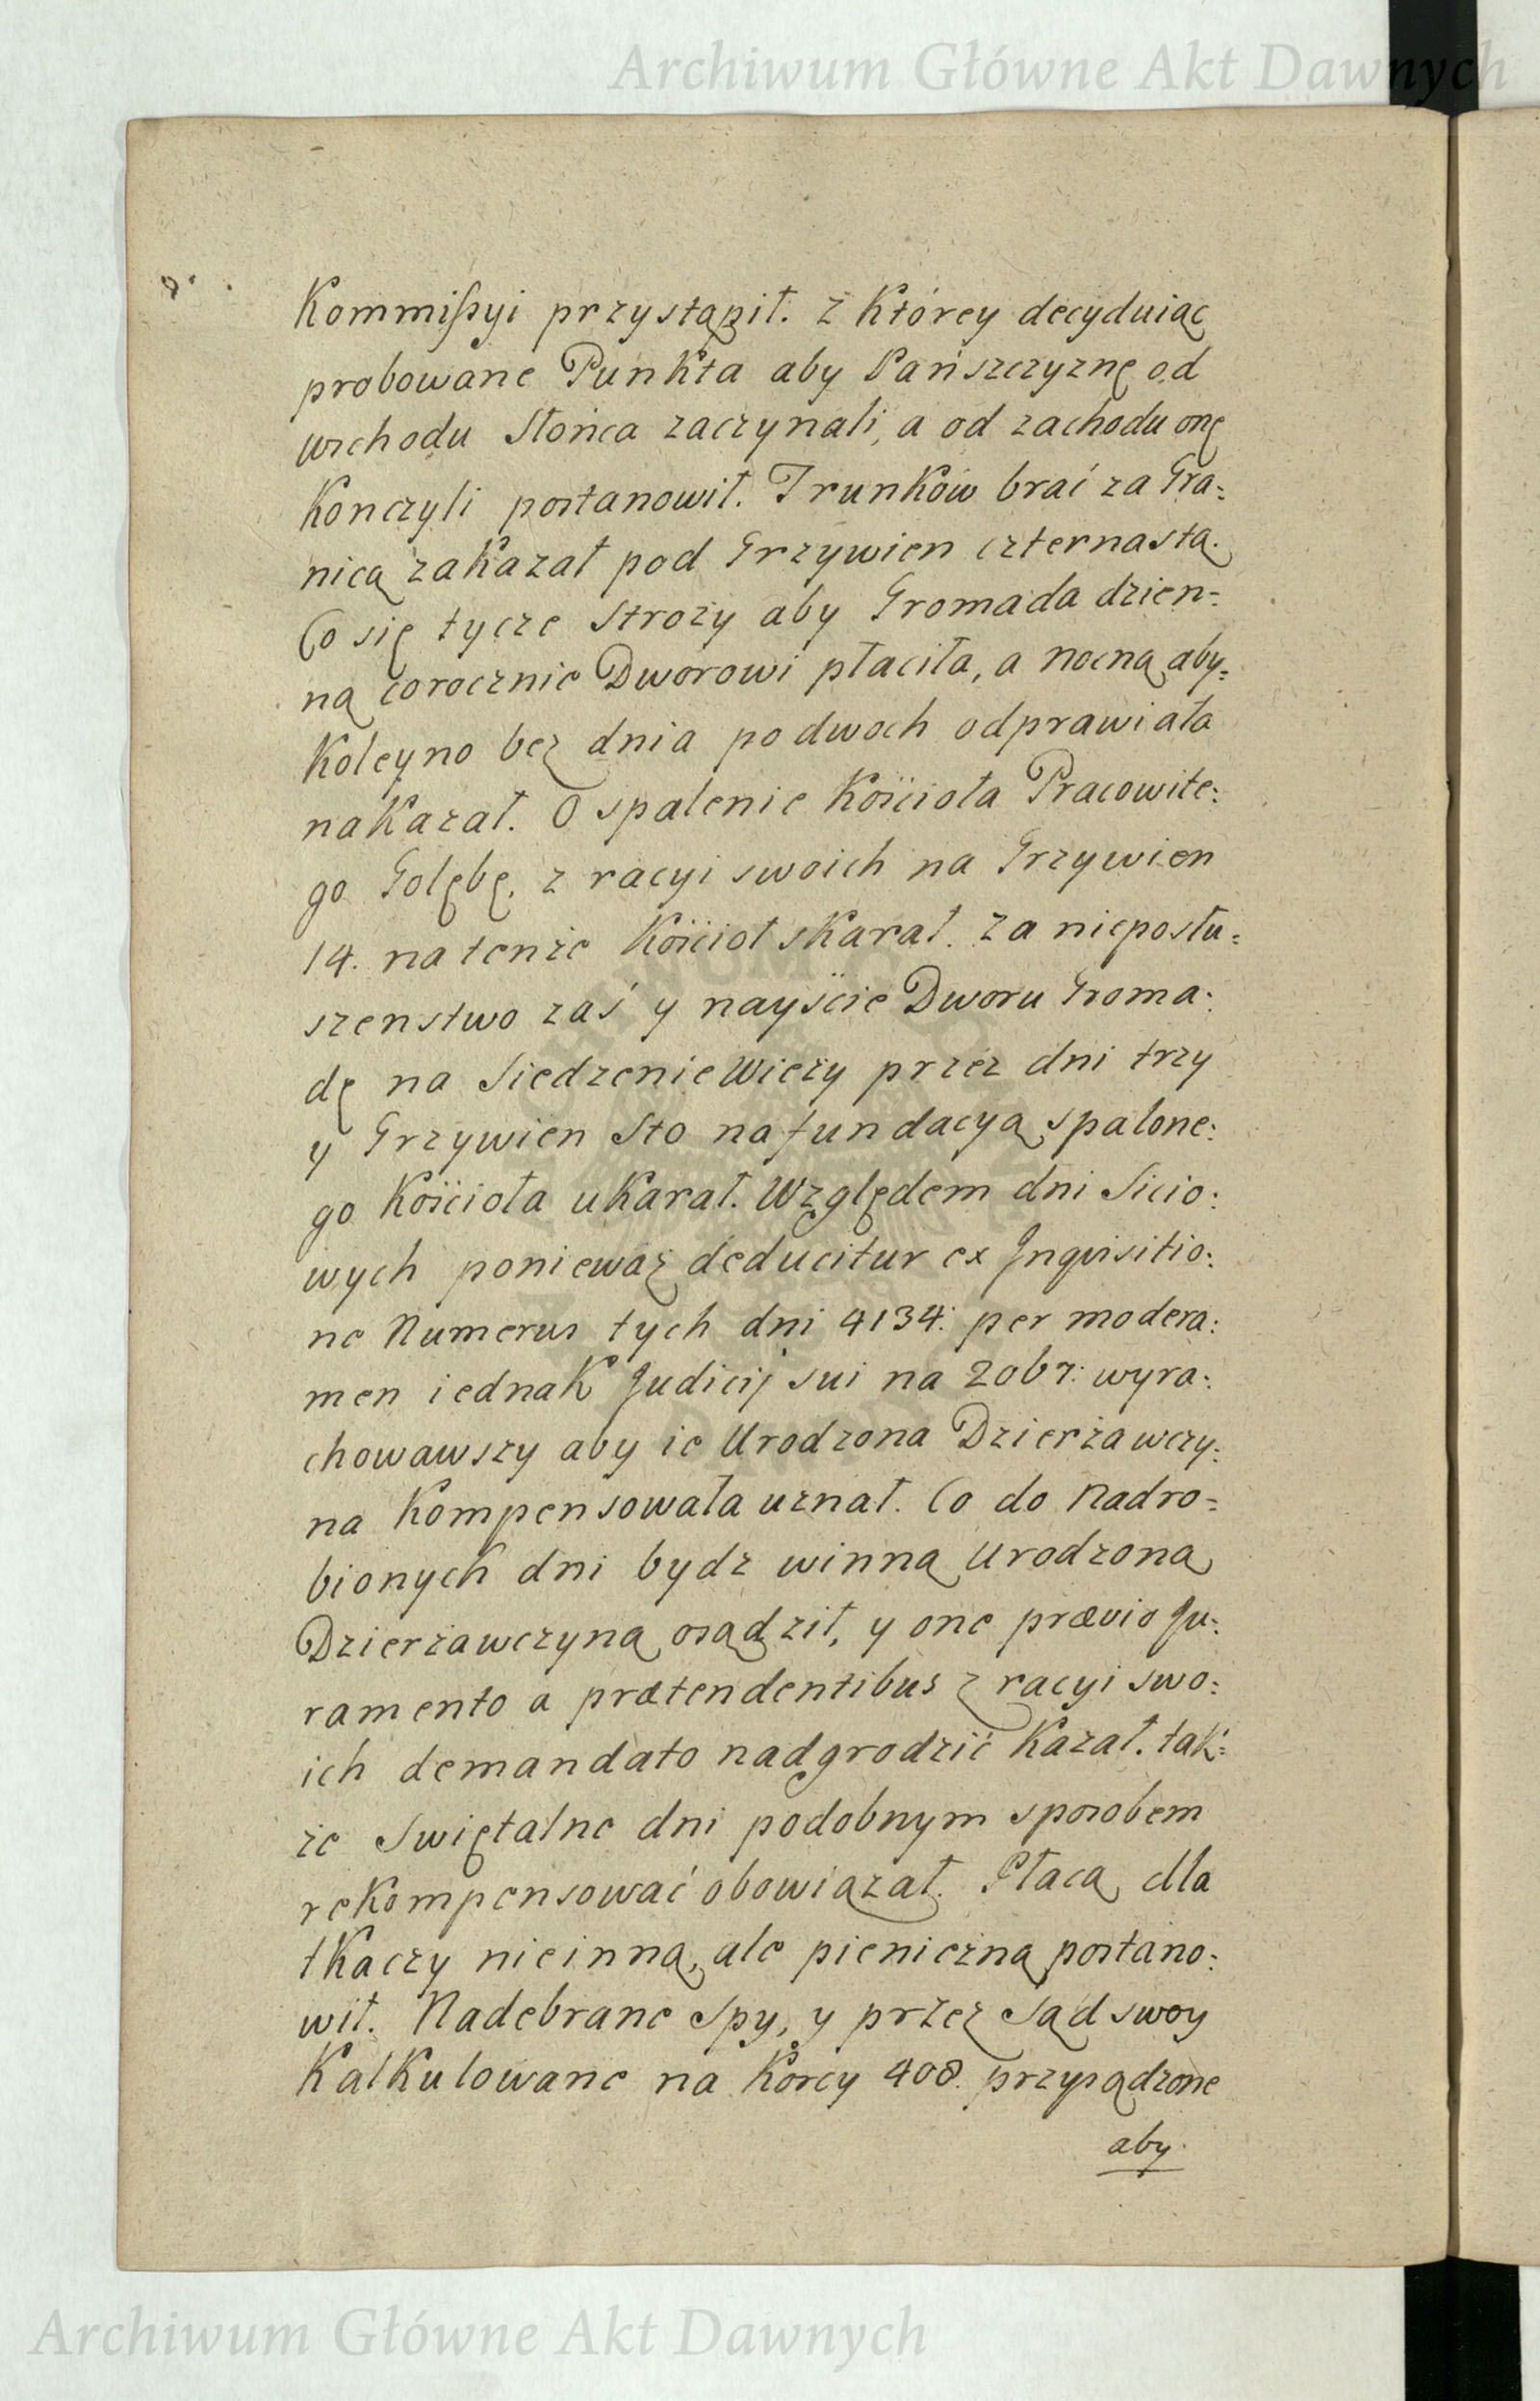 Archiwum Główne Akt Dawnych
Kommissyi przystąpił. z Którey decyduiąc
probowane Punkta aby Pańszczyznę od
wschodu Słońca zaczynali, a od zachodu onę
Konczyli postanowił. Trunków brać za Gra:
nicą zakazał pod Grzywien czternastą.
Co się tycze Strozy aby Gromada dzien:
ną corocznie Dworowi płaciła, a nocną aby:
Koleyno bez dnia po dwoch odprawiała
nakazał. O spalenie Kościoła Pracowite:
go Gołębę, z racyi swoich na Grzywien
14. na tenże Kościoł skarał. Za nieposłu:
szenstwo zaś y nayście Dworu Groma:
dę na Siedzenie Wieży przez dni trzy
y Grzywien Sto na fundacyą spalone:
go Kościoła ukarał. Względem dni Sicio:
wych poniewaz deducitur ex Inqvisitio:
ne Numerus tych dni 4134: per modera:
men iednak Judicij sui na 2067: wyra:
chowawszy aby ie Urodzona Dzierżawczy:
na Kompensowała uznał. Co do Nadro:
bionych dni bydz winną Urodzoną
Dzierżawczyną osądził, y one prævio Ju:
ramento a prætendentibus z racyi swo:
ich demandato nadgrodzić Kazał. tak:
że Swiętalne dni podobnym sposobem
rekompensować obowiązał. Płacą dla
tkaczy nieinną, ale pienieżną postano:
wił. Nadebrane Spy, y przez Sąd swoy
Kalkulowane na Korcy 408. przysądzone
aby.
Archiwum Główne Akt Dawnych